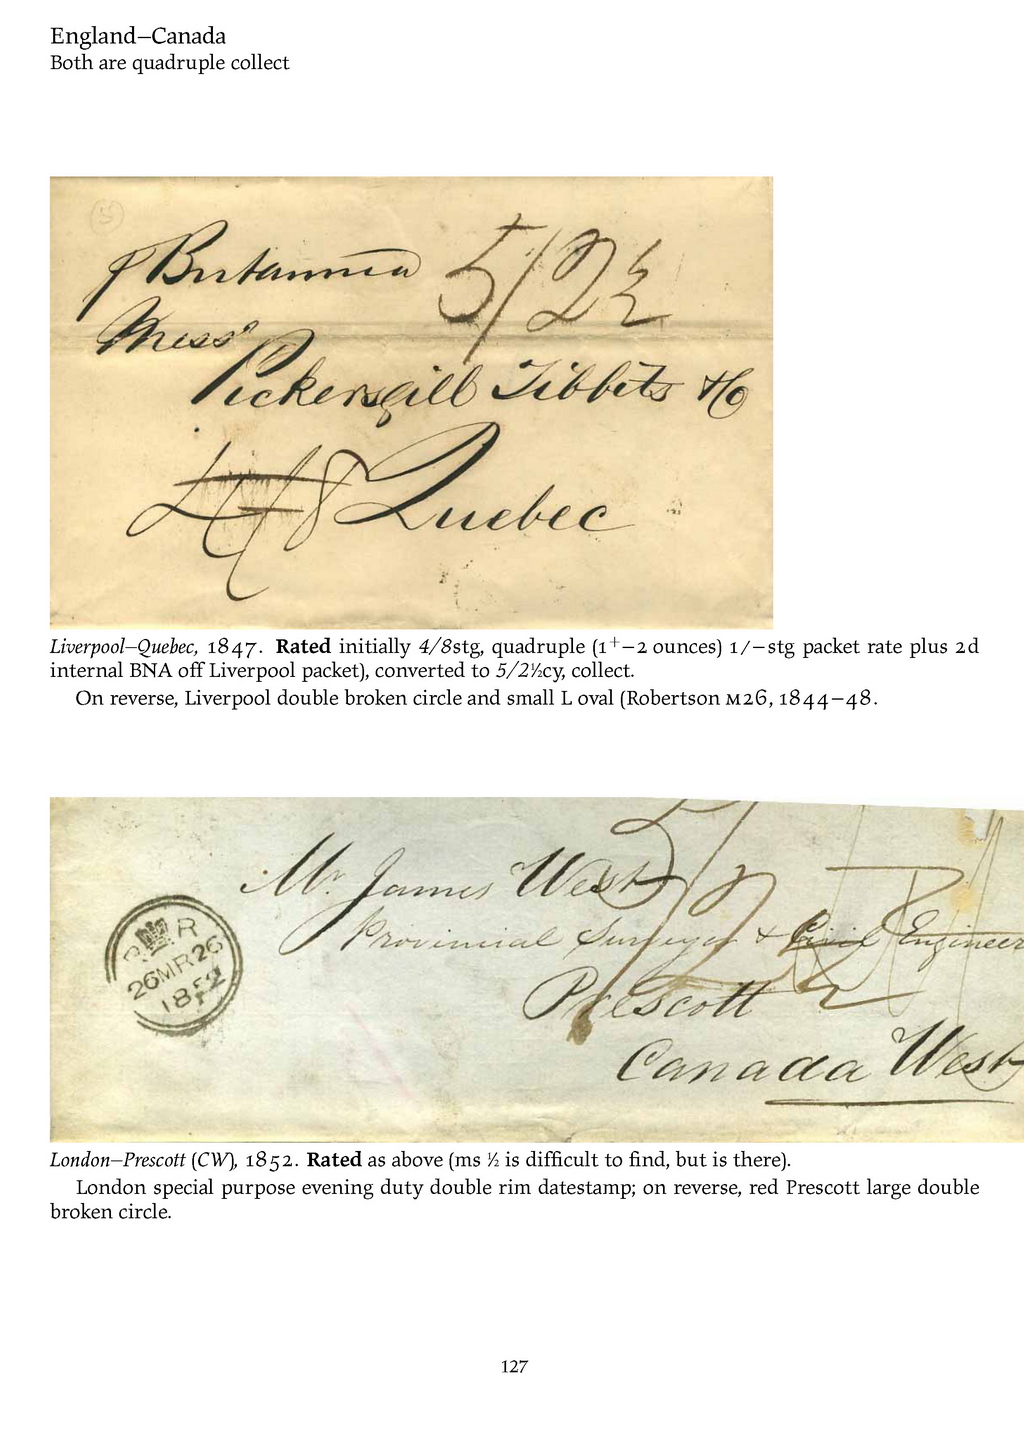 England–Canada
Both are quadruple collect
5
p Britannia 5/2½
Mess^rs
Pickersgill Tibbits & Co
4/8 Quebec
Liverpool–Quebec, 1847. Rated initially 4/8stg, quadruple (1⁺–2 ounces) 1/–stg packet rate plus 2d
internal BNA off Liverpool packet), converted to 5/2½cy, collect.
On reverse, Liverpool double broken circle and small L oval (Robertson M26, 1844–48.
5/2½
Mr. James West
Provinnial Surveyor & Civil Engineer
Prescott
Canada West
R
26MR26
1852
London–Prescott (CW), 1852. Rated as above (ms ½ is difficult to find, but is there).
London special purpose evening duty double rim datestamp; on reverse, red Prescott large double
broken circle.
127